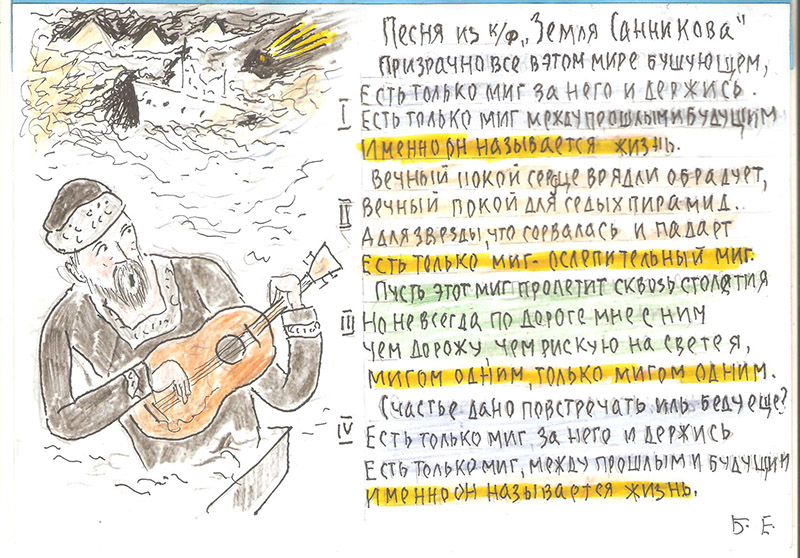 Песня из к/ф „Земля Санникова"
Призрачно все в этом мире бушующем,
Есть только миг за него и держись.
I Есть только миг между прошлым и будущим
Именно он называется жизнь.
Вечный покой сердце врядли обрадует,
II Вечный покой для седых пирамид.
А для звезды, что сорвалась и падает
Есть только миг - ослепительный миг.
Пусть этот миг пролетит сквозь столетия
III Но не всегда по дороге мне с ним
Чем дорожу, чем рискую на свете я,
Мигом одним, только мигом одним.
Счастье дано повстречать иль беду еще?
IV Есть только миг, за него и держись
Есть только миг, между прошлым и будущий
Именно он называется жизнь.
Б. Е.